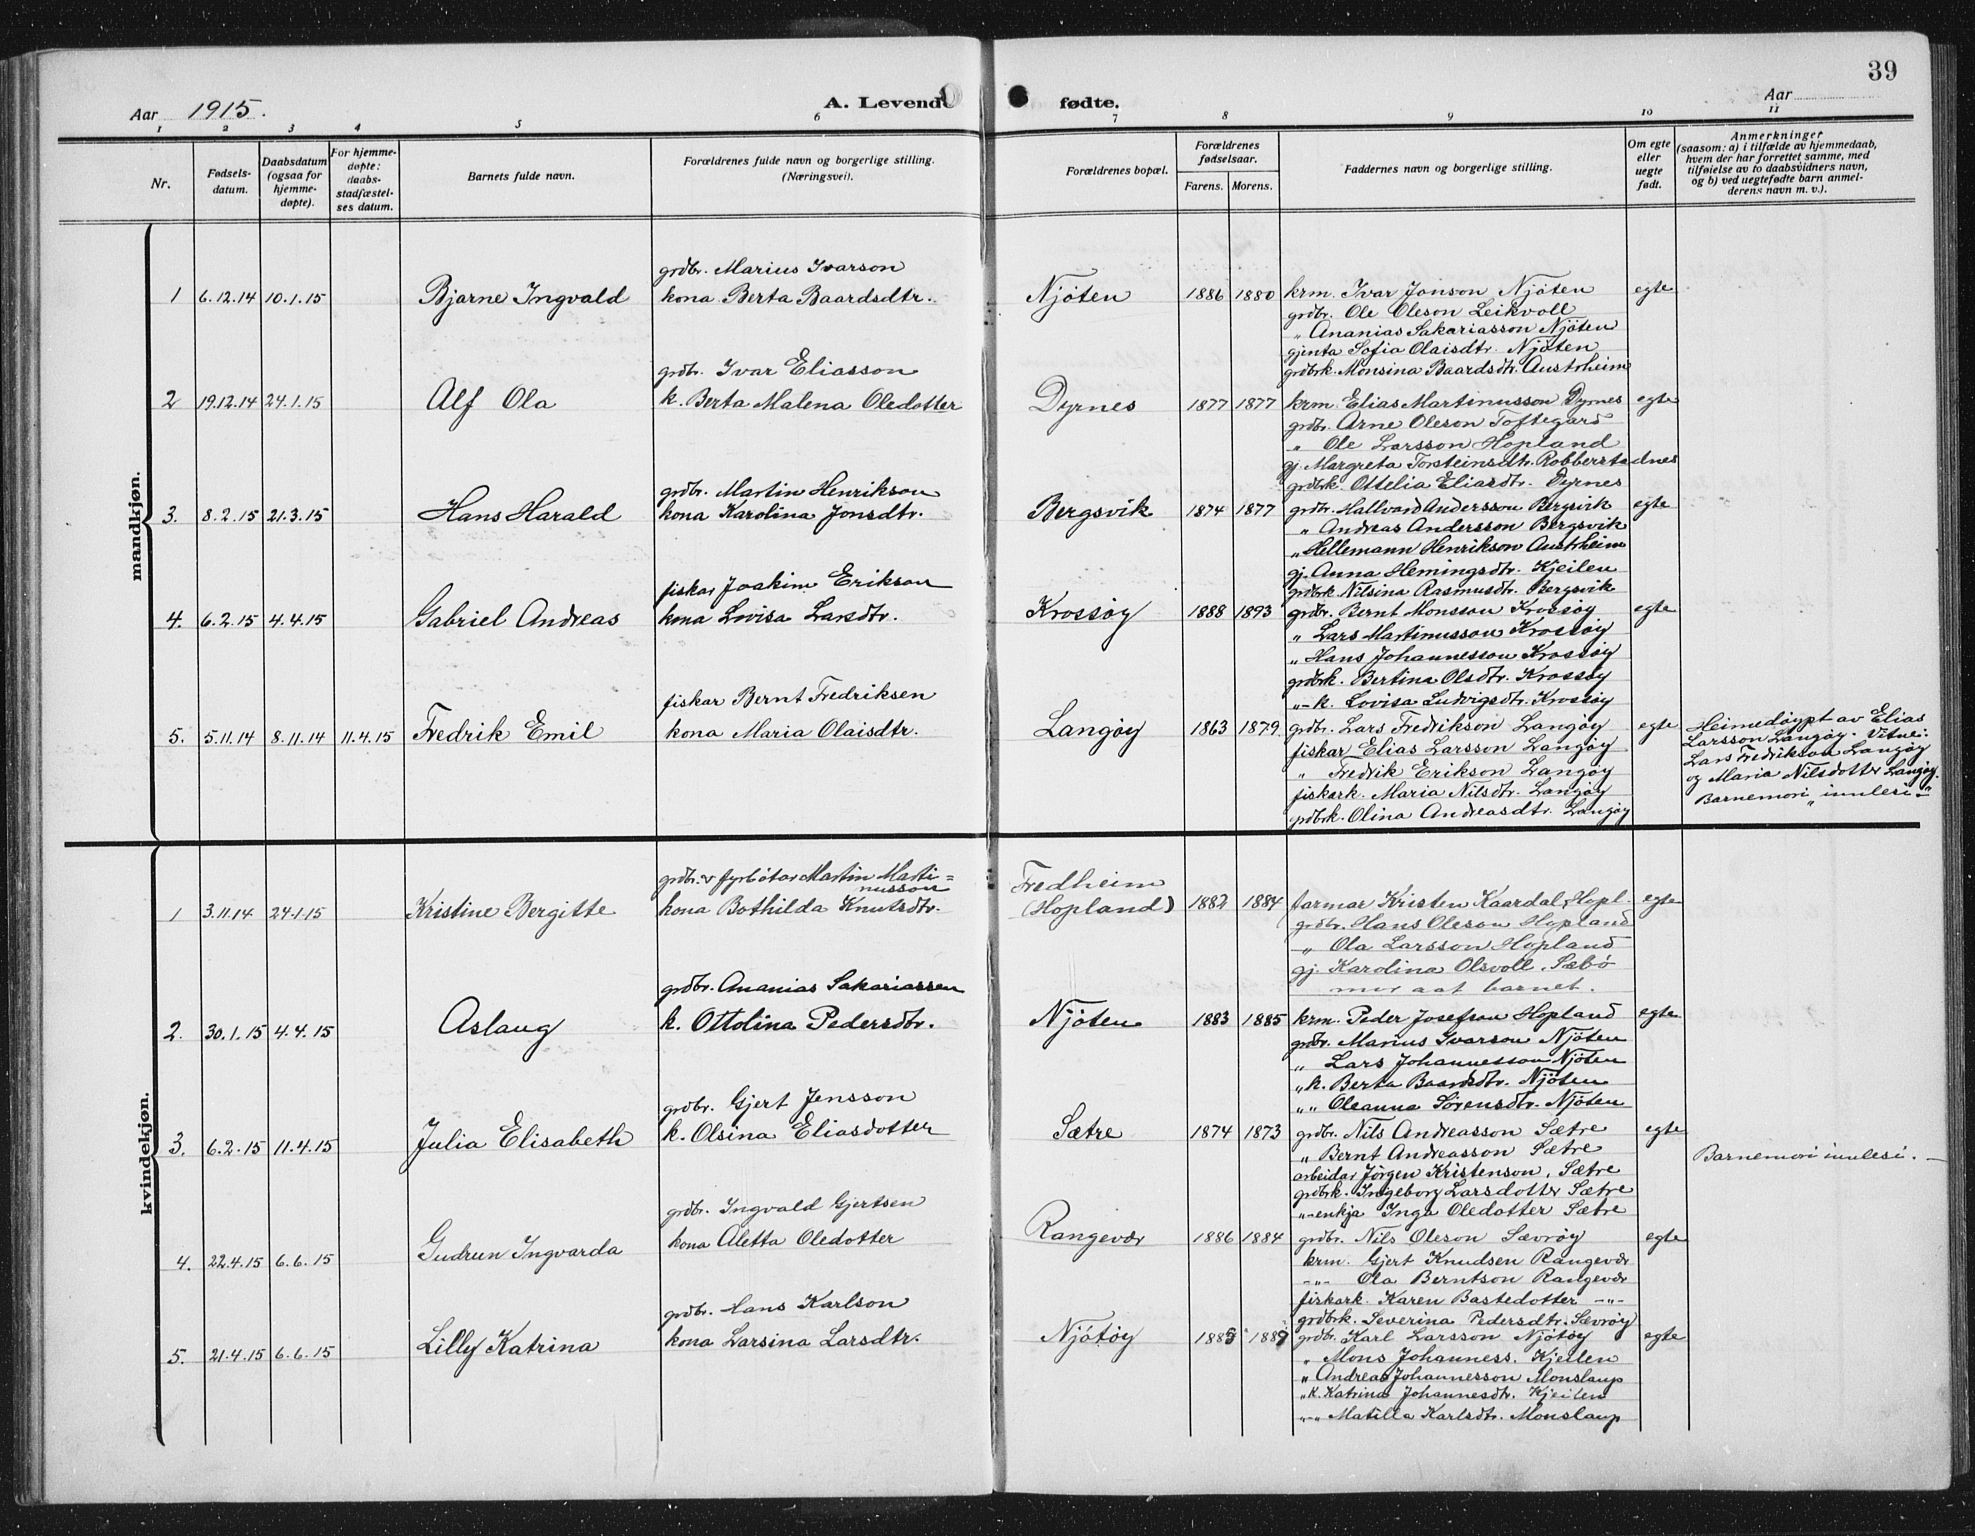 39
Aar 1915. A. Levende fødte. Aar
1 2 3 4 5 6 7 8 9 10 11
Nr.
Fødsels-
datum.
Daabsdatum
(ogsaa for
hjemme-
døpte).
For hjemme-
døpte:
daabs-
stadfæstel-
ses datum.
Barnets fulde navn.
Forældrenes fulde navn og borgerlige stilling.
(Næringsvei).
Forældrenes bopæl.
Forældrenes
fødselsaar.
Farens. Morens.
Faddernes navn og borgerlige stilling.
Om egte
eller
uegte
født.
Anmerkninger
(saasom: a) i tilfælde av hjemmedaab,
hvem der har forrettet samme, med
tilføielse av to daabsvidners navn,
og b) ved uegtefødte barn anmel-
derens navn m. v.).
mandkjøn.
grdbr. Marius Ivarson
1 6.12.14 10.1.15 Bjarne Ingvald kona Berta Baardsdtr. Njøten 1886 1880 krm. Ivar Jonson Njøten egte
grdbr. Ole Oleson Leikvoll
„ Ananias Sakariasson Njøten
gjenta Sofia Olaisdtr. Njøten
grdbrk. Monsina Baardsdtr. Austrheim
grdbr. Ivar Eliasson
2 19.12.14 24.1.15 Alf Ola k. Berta Malena Oledotter Dyrnes 1877 1877 krm. Elias Martinusson Dyrnes egte
grdbr. Arne Oleson Toftegard
„ Ole Larsson Hopland
gj. Margreta Torsteinsdtr. Robberstadnes
grdbrk. Ottelia Eliasdtr. Dyrnes
grdbr. Martin Henrikson
3. 8.2.15 21.3.15 Hans Harald kona Karolina Jonsdtr. Bergsvik 1874 1877 grdbr. Hallvard Andersson Bergsvik egte
„ Andreas Andersson Bergsvik
„ Hellemann Henrikson Austrheim
gj. Anna Hemingsdtr. Kjeilen
grdbrk. Nilsina Rasmusdtr. Bergsvik
fiskar Joakim Erikson
4. 6.2.15 4.4.15 Gabriel Andreas kona Lovisa Larsdtr. Krossøy 1888 1893 grdbr. Bernt Monsson Krossøy egte
„ Lars Martinusson Krossøy
„ Hans Johannesson Krossøy
grdbrk. Bertina Olsdtr. Krossøy
„-k. Lovisa Ludvigsdtr. Krossøy
fiskar Bernt Fredriksen
5. 5.11.14 8.11.14 11.4.15 Fredrik Emil kona Maria Olaisdtr. Langøy 1863 1879 grdbr. Lars Fredrikson Langøy egte Heimedøypt av Elias
fiskar Elias Larsson Langøy Larsson Langøy. Vitne:
„ Fredrik Erikson Langøy Lars Fredrikson Langøy
fiskark. Maria Nilsdtr. Langøy og Maria Nilsdotter Langøy.
grdbrk. Olina Andreasdtr. Langøy Barnemori „innlesi“
kvindekjøn.
grdbr. & fyrbøtar Martin Marti=
nusson
1 3.11.14 24.1.15 Kristine Bergitte kona Bothilda Knutsdtr. Fredheim
(Hopland) 1882 1884 farmar Kristen Kaardal, Hopl. egte
grdbr. Hans Oleson Hopland
„ Ola Larsson Hopland
gj. Karolina Olsvoll. Sæbø
mor aat barnet.
grdbr. Ananias Sakariassen
2. 30.1.15 4.4.15 Aslaug k. Ottolina Pedersdtr. Njøten 1883 1885 krm. Peder Josefson Hopland egte
grdbr. Marius Ivarson Njøten
„ Lars Johannesson Njøten
„ k. Berta Baardsdtr. Njøten
„ „ Oleanna Sørensdtr. Njøten
grdbr. Gjert Jensson
3. 6.2.15 11.4.15 Julia Elisabeth k. Olsina Eliasdotter Sætre 1874 1873 grdbr. Nils Andreasson Sætre egte
„ Bernt Andreasson Sætre Barnemori innlesi. —
arbeidar Jørgen Kristenson, Sætre
grdbrk. Ingeborg Larsdotter Sætre
„-enkja Inga Oledotter Sætre
grdbr. Ingvald Gjertsen
4. 22.4.15 6.6.15 Gudrun Ingvarda kona Aletta Oledotter Rangevær 1886 1884 grdbr. Nils Oleson Sævrøy egte
krm. Gjert Knudsen Rangevær
-„- Ola Berntson Rangevær
fiskark. Karen Bastedotter -„-
grdbrk. Severina Pedersdtr. Sævrøy
grdbr. Hans Karlson
5. 21.4.15 6.6.15 Lilly Katrina kona Larsina Larsdtr. Njøtøy grdbr. Karl Larsson Njøtøy egte
„ Mons Johanness. Kjeilen
„ Andreas Johannesson Monslaup
„k. Katrina Johannesdtr. Kjeilen
„-„ Matilla Karlsdtr. Monslaup